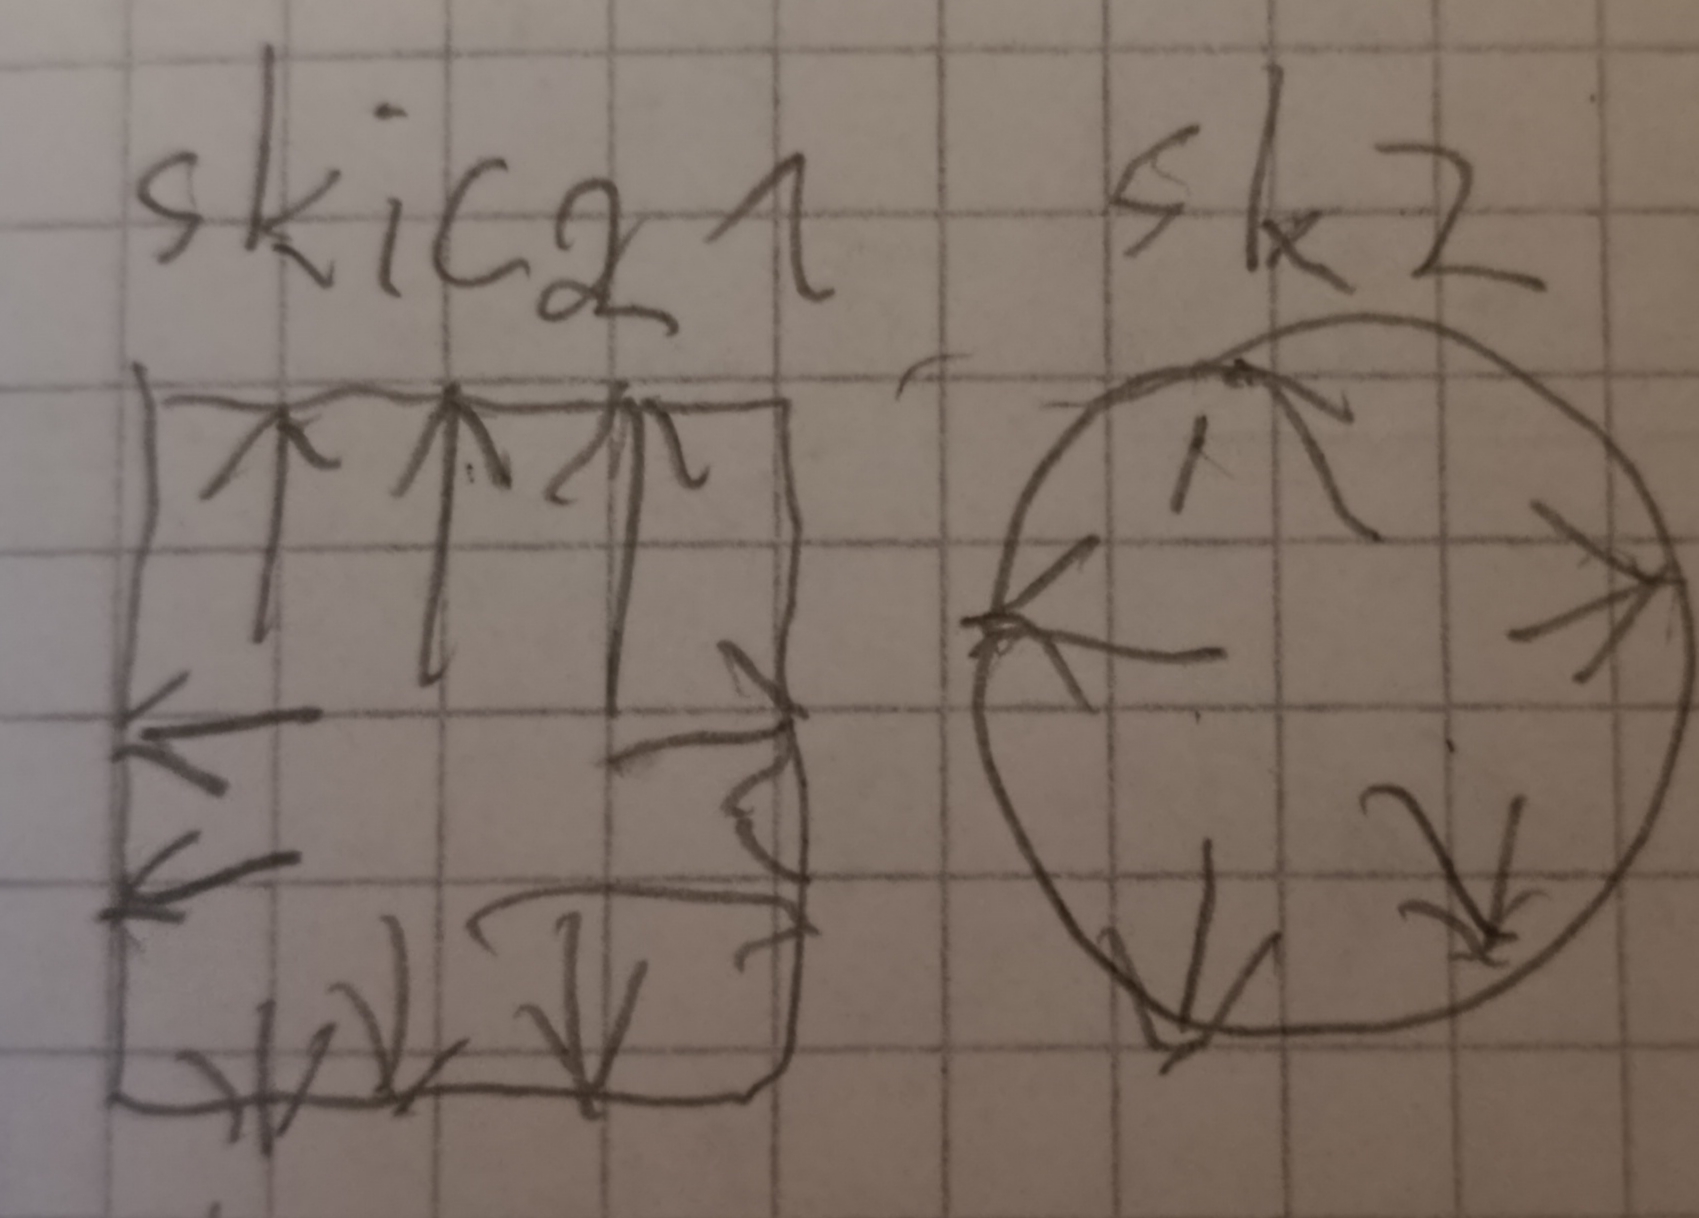 skicz 1 sk 2